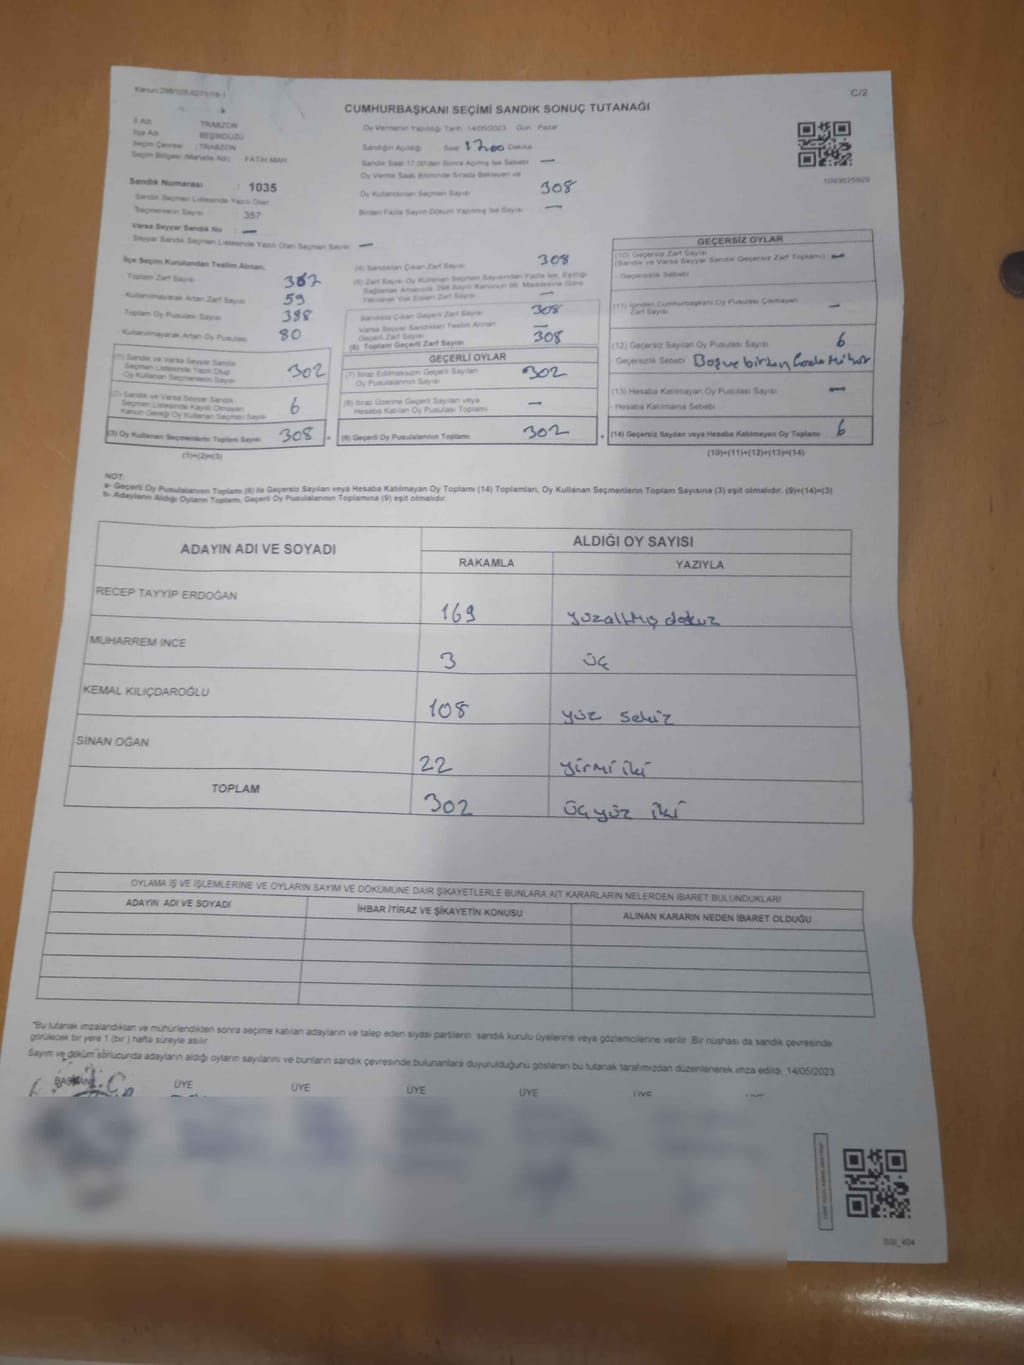 Kanun:298/105,6271/19-1
C/2
CUMHURBAŞKANI SEÇİMİ SANDIK SONUÇ TUTANAĞI
İl Adı TRABZON
İlçe Adı BEŞİKDÜZÜ
Seçim Çevresi : TRABZON
Seçim Bölgesi (Mahalle Adı) : FATİH MAH
Sandık Numarası : 1035
Sandık Seçmen Listesinde Yazılı Olan
Seçmenlerin Sayısı 357
Varsa Seyyar Sandık No —
Seyyar Sandık Seçmen Listesinde Yazılı Olan Seçmen Sayısı —
Oy Vermenin Yapıldığı Tarih: 14/05/2023 Gün: Pazar
Sandığın Açıldığı Saat 17.00 Dakika
Sandık Saat 17:00'den Sonra Açılmış İse Sebebi —
Oy Verme Saati Bitiminde Sırada Bekleyen ve
Oy Kullandırılan Seçmen Sayısı 308
Birden Fazla Sayım Döküm Yapılmış İse Sayısı —
1093625929
İlçe Seçim Kurulundan Teslim Alınan;
Toplam Zarf Sayısı
Kullanılmayarak Artan Zarf Sayısı 59
Toplam Oy Pusulası 388
Kullanılmayarak Artan Oy Pusulası 80
(1) Sandık ve Varsa Seyyar Sandık
Seçmen Listesinde Yazılı Olup
Oy Kullanan Seçmenlerin Sayısı 302
(2) Sandık ve Varsa Seyyar Sandık
Seçmen Listesinde Kayıtlı Olmayan
Kanun Gereği Oy Kullanan Seçmen Sayısı 6
(3) Oy Kullanan Seçmenlerin Toplam Sayısı 308
(1)+(2)=(3)
(4) Sandıktan Çıkan Zarf Sayısı 308
(5) Zarf Sayısı Oy Kullanan Seçmen Sayısından Fazla İse, Eşitliği
Sağlamak Amacıyla; 298 Sayılı Kanunun 98. Maddesine Göre
Yakılarak Yok Edilen Zarf Sayısı —
Sandıkta Çıkan Geçerli Zarf Sayısı 308
Varsa Seyyar Sandıktan Teslim Alınan
Geçerli Zarf Sayısı —
(6) Toplam Geçerli Zarf Sayısı 308
GEÇERLİ OYLAR
(7) İtiraz Edilmeksizin Geçerli Sayılan
Oy Pusulasının Sayısı 302
(8) İtiraz Üzerine Geçerli Sayılan veya
Hesaba Katılan Oy Pusulası Toplamı —
(9) Geçerli Oy Pusulalarının Toplamı 302
GEÇERSİZ OYLAR
(10) Geçersiz Zarf Sayısı
(Sandık ve Varsa Seyyar Sandık Geçersiz Zarf Toplamı) —
- Geçersizlik Sebebi
(11) İçinden Cumhurbaşkanı Oy Pusulası Çıkmayan
Zarf Sayısı —
(12) Geçersiz Sayılan Oy Pusulası Sayısı 6
- Geçersizlik Sebebi Boş ve birden fazla Mühür
(13) Hesaba Katılmayan Oy Pusulası Sayısı —
- Hesaba Katılmama Sebebi
(14) Geçersiz Sayılan veya Hesaba Katılmayan Oy Toplamı 6
(10)+(11)+(12)+(13)=(14)
NOT:
a- Geçerli Oy Pusulalarının Toplamı (9) ile Geçersiz Sayılan veya Hesaba Katılmayan Oy Toplamı (14) Toplamları, Oy Kullanan Seçmenlerin Toplam Sayısına (3) eşit olmalıdır. (9)+(14)=(3)
b- Adayların Aldığı Oyların Toplamı, Geçerli Oy Pusulalarının Toplamına (9) eşit olmalıdır.
ADAYIN ADI VE SOYADI
ALDIĞI OY SAYISI
RAKAMLA YAZIYLA
RECEP TAYYİP ERDOĞAN 169 yüzaltmış dokuz
MUHARREM İNCE 3 üç
KEMAL KILIÇDAROĞLU 108 yüz sekiz
SİNAN OĞAN 22 yirmi iki
TOPLAM 302 üçyüz iki
OYLAMA İŞ VE İŞLEMLERİNE VE OYLARIN SAYIM VE DÖKÜMÜNE DAİR ŞİKAYETLERLE BUNLARA AİT KARARLARIN NELERDEN İBARET BULUNDUKLARI
ADAYIN ADI VE SOYADI İHBAR İTİRAZ VE ŞİKAYETİN KONUSU ALINAN KARARIN NEDEN İBARET OLDUĞU
*Bu tutanak imzalandıktan ve mühürlendikten sonra seçime katılan adayların ve talep eden siyasi partilerin sandık kurulu üyelerine veya gözlemcilerine verilir. Bir nüshası da sandık çevresinde
görülecek bir yere 1 (bir) hafta süreyle asılır.
Sayım ve döküm sonucunda adayların aldığı oyların sayılarını ve bunların sandık çevresinde bulunanlara duyurulduğunu gösteren bu tutanak tarafımızdan düzenlenerek imza edildi. 14/05/2023
BAŞKAN ÜYE ÜYE ÜYE ÜYE ÜYE